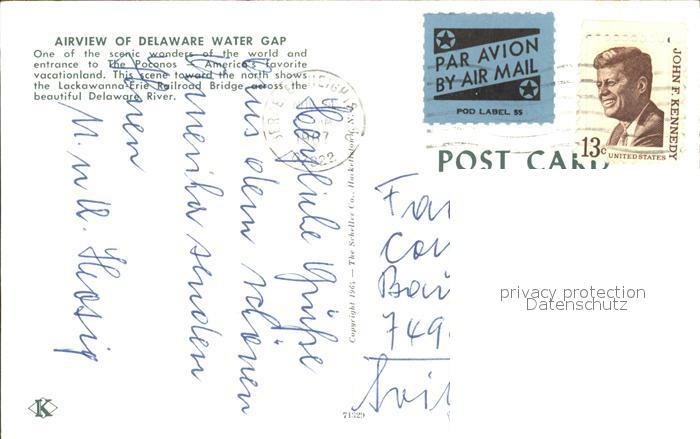 AIRVIEW OF DELAWARE WATER GAP
One of the scenic wonders of the world and
entrance to The Poconos — America's favorite
vacationland. This scene toward the north shows
the Lackawanna-Erie Railroad Bridge across the
beautiful Delaware River.
PAR AVION
BY AIR MAIL
POD LABEL 55
JOHN F. KENNEDY
13c UNITED STATES
POST CARD
Herzliche Grüße
aus dem schönen
Amerika senden
Ihnen
M. u. H.
Copyright 1965 — The Scheller Co., Hackettstown, N.J.
privacy protection
Datenschutz
749
K
71329